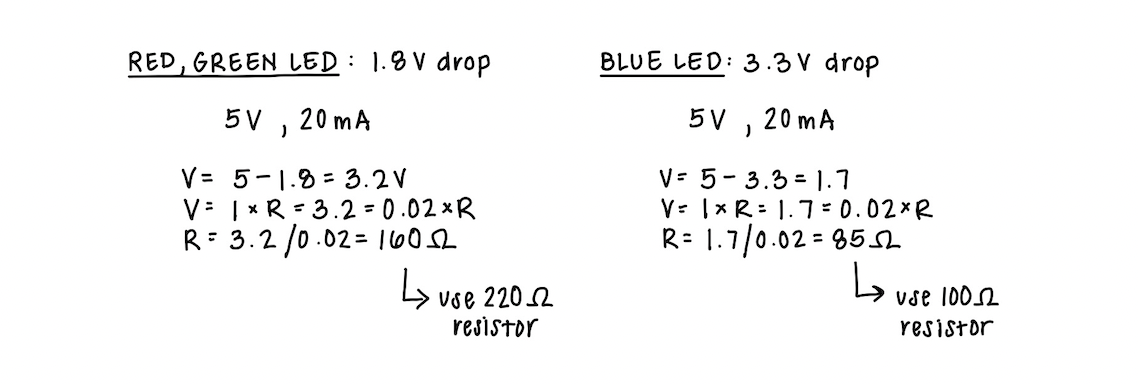 RED, GREEN LED: 1.8V drop
5V, 20mA
V= 5-1.8=3.2V
V= I×R=3.2=0.02×R
R=3.2/0.02=160Ω
use 220Ω
resistor
BLUE LED: 3.3V drop
5V, 20mA
V= 5-3.3=1.7
V= I×R=1.7=0.02×R
R=1.7/0.02=85Ω
use 100Ω
resistor